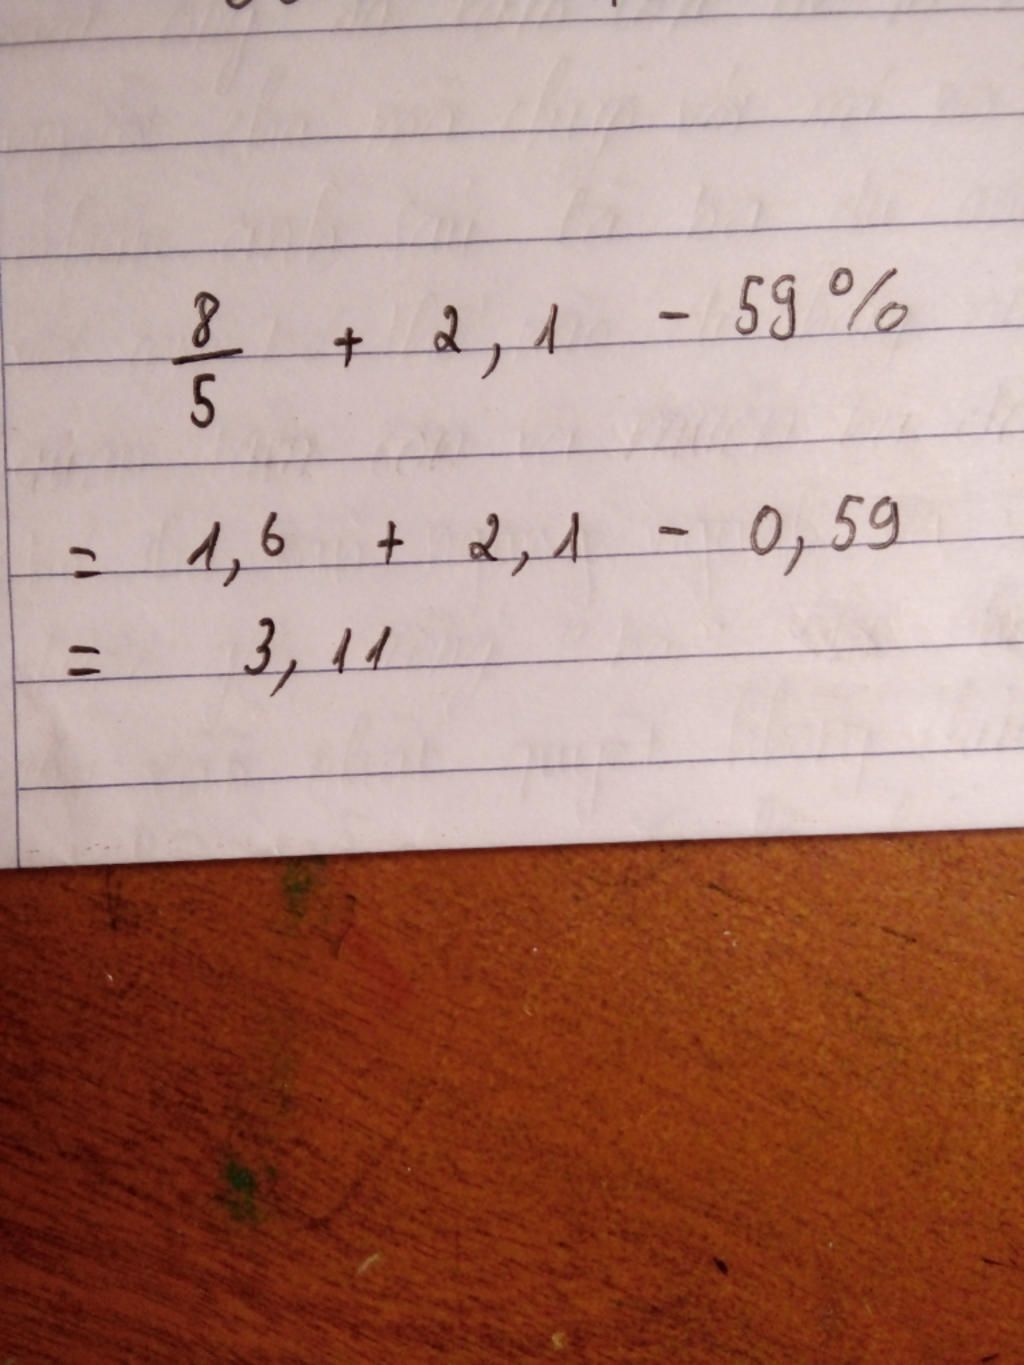 8/5 + 2,1 - 59%
= 1,6 + 2,1 - 0,59
= 3,11